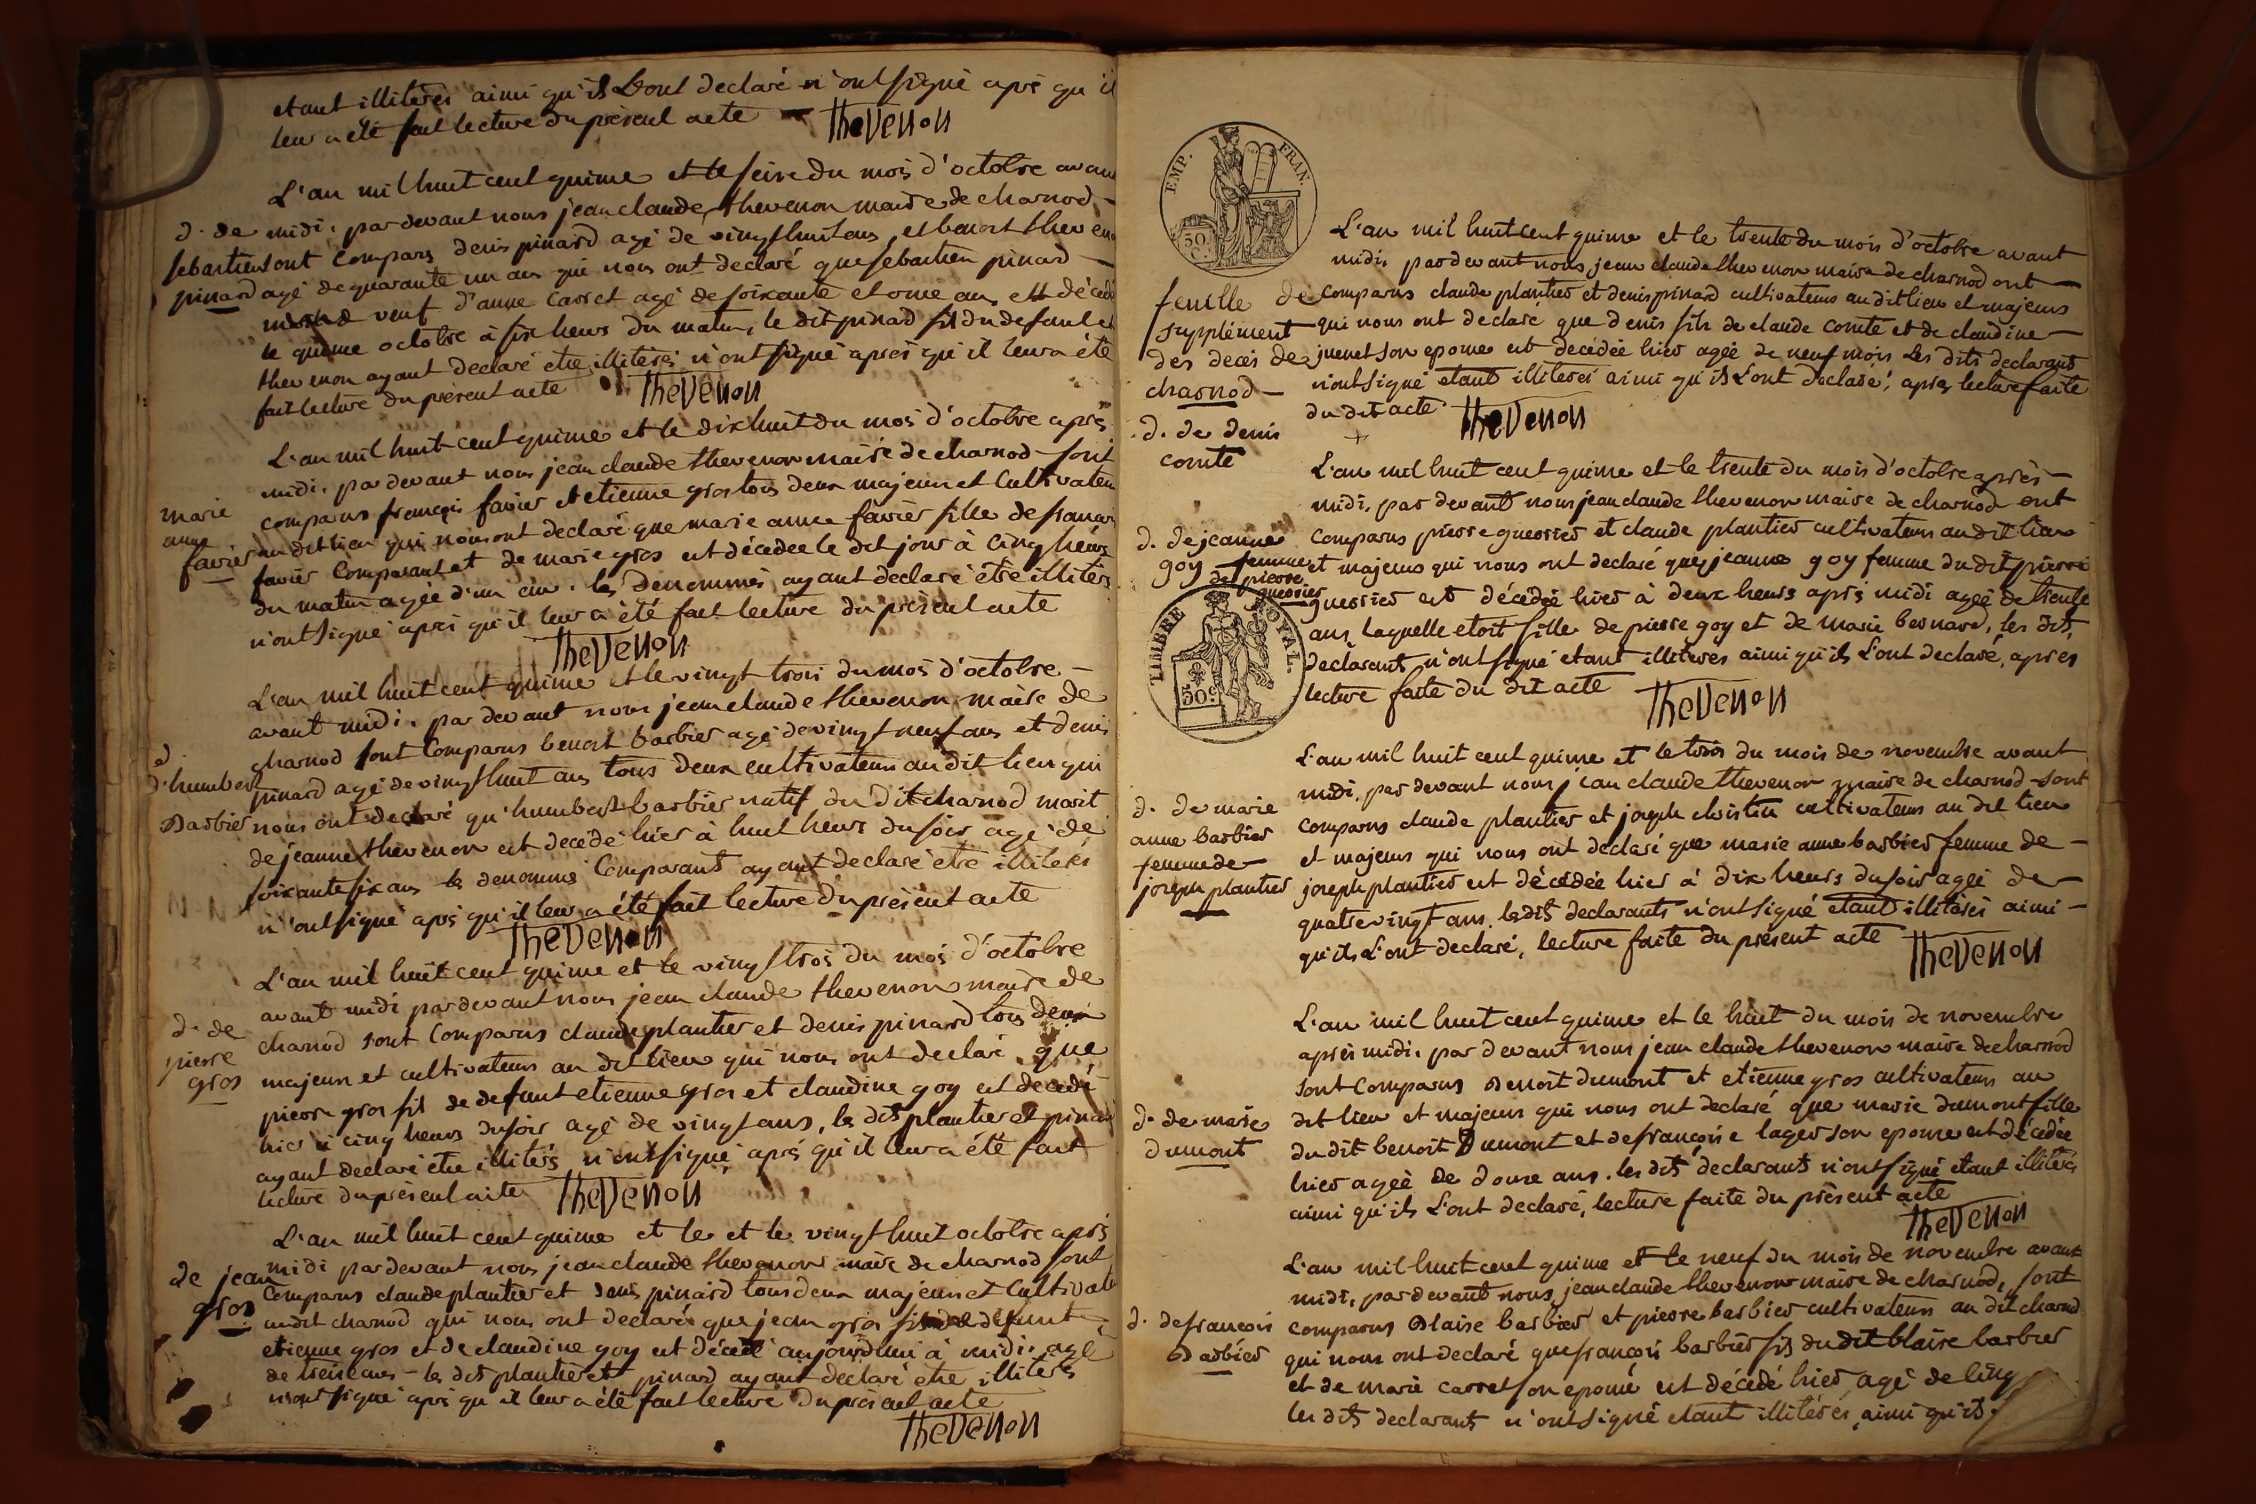 etant illiterés ainsi qu'ils L'ont declaré n'ont signé aprés qu'il
leur a été fait lecture du présent acte Thevenon
L'an mil huit cent quinze et le seize du mois d'octobre avant
midi, par devant nous jean claude thevenon maire de charnod
d. de
sebastien
pinard
sont comparus denis pinard agé de vingt huit ans, et benoit theven
agé de quarante un ans qui nous ont declaré que sebastien pinard
veuf d'anne carret agé de soixante et onze ans est décédé
le quinze octobre à six heurs du matin, le dit pinard fil du defunt et
thevenon ayant declaré etre illiterés n'ont signé aprés qu'il leur a été
fait lecture du présent acte Thevenon
L'an mil huit cent quinze et le dix huit du mois d'octobre aprés
midi, par devant nous jean claude thevenon maire de charnod sont
marie
anne
favier
comparus françois favier et etienne gros tous deux majeurs et Cultivateurs
au dit lieu qui nous ont declaré que marie anne favier fille de françois
favier Comparant et de marie gros est décédée le dit jour à cinq heurs
du matin agée d'un an. les denommés ayant declaré être illiterés
n'ont signé aprés qu'il leur a été fait lecture du présent acte
Thevenon
L'an mil huit cent quinze et le vingt trois du mois d'octobre
avant midi, par devant nous jean claude thevenon maire de
charnod sont Comparus benoit barbier agé de vingt neuf ans et denis
d.
d'humbert
Barbier
pinard agé de vingt huit ans tous deux cultivateurs au dit lieu qui
nous ont declaré qu'humbert barbier natif du dit charnod marit
de jeanne thevenon est décédé hier à huit heurs du soir agé de
soixante six ans les denommés Comparants ayant declaré etre illiterés
n'ont signé aprés qu'il leur a été fait lecture du présent acte
Thevenon
L'an mil huit cent quinze et le vingt trois du mois d'octobre
avant midi par devant nous jean claude thevenon maire de
d. de
pierre
gros
charnod sont Comparus claude plantier et denis pinard tous deux
majeurs et cultivateurs au dit lieu qui nous ont declaré que
pierre gros fil de defunt etienne gros et claudine goy est décédé
hier à cinq heurs du soir agé de vingt ans, les dits plantier et pinard
ayant declaré être illiterés n'ont signé aprés qu'il leur a été fait
lecture du présent acte Thevenon
L'an mil huit cent quinze et le et le vingt huit octobre aprés
midi par devant nous jean claude thevenon maire de charnod sont
de jean
gros
comparus claude plantier et denis pinard tous deux majeurs et Cultivate
audit charnod qui nous ont declaré que jean gros fils de defunt
etienne gros et de claudine goy est décédé aujourd'hui à midi, agé
de treize ans les dits plantier et pinard ayant declaré etre illiterés
n'ont signé aprés qu'il leur a été fait lecture du présent acte
Thevenon
EMP. FRAN.
50 C.
L'an mil huit cent quinze et le trente du mois d'octobre avant
midi, par devant nous jean claude thevenon maire de charnod ont
feuille de
supplément
des decés de
charnod
d. de denis
comte
comparus claude plantier et denis pinard cultivateurs au dit lieu et majeurs
qui nous ont declaré que denis fils de claude comte et de claudine
juenet son epouse est decédée hier agée de neuf mois les dits declarants
n'ont signé etant illiterés ainsi qu'ils L'ont declaré, aprés lecture faite
du dit acte Thevenon
L'an mil huit cent quinze et le trente du mois d'octobre après
midi, par devant nous jean claude thevenon maire de charnod ont
d. de jeanne
goy femme
de pierre
guerrier
comparus pierre guerrier et claude plantier cultivateurs au dit lieu
et majeurs qui nous ont declaré que jeanne goy femme du dit pierre
guerrier est décédée hier à deux heurs aprés midi agée de trente
ans, laquelle etoit fille de pierre goy et de marie bernard, les dits
declarants n'ont signé etant illiterés ainsi qu'ils L'ont declaré, aprés
lecture faite du dit acte Thevenon
TIMBRE ROYAL.
50 C.
L'an mil huit cent quinze et le trois du mois de novembre avant
midi, par devant nous jean claude thevenon maire de charnod sont
d. de marie
anne barbier
femme de
joseph plantier
comparus claude plantier et joseph christin cultivateurs au dit lieu
et majeurs qui nous ont declaré que marie anne barbier femme de
joseph plantier est décédée hier à dix heurs du soir agée de
quatre vingt ans, les dits declarants n'ont signé etant illiterés ainsi
qu'ils L'ont declaré, lecture faite du présent acte Thevenon
L'an mil huit cent quinze et le huit du mois de novembre
aprés midi, par devant nous jean claude thevenon maire de charnod
sont comparus Benoit dumont et etienne gros cultivateurs au
d. de marie
dumont
dit lieu et majeurs qui nous ont declaré que marie dumont fille
du dit benoit Dumont et de françoise lager son epouse est décédée
hier agée de douze ans. les dits declarants n'ont signé etant illiterés
ainsi qu'ils L'ont declaré, lecture faite du présent acte
Thevenon
L'an mil huit cent quinze et le neuf du mois de novembre avant
midi, par devant nous, jean claude thevenon maire de charnod, sont
d. de françois
Barbier
comparus Blaise barbier et pierre barbier cultivateurs au dit charnod
qui nous ont declaré que françois barbier fils du dit blaise barbier
et de marie carret son epouse est décédé hier, agé de cinq
les dits declarants n'ont signé etant illiterés, ainsi qu'ils